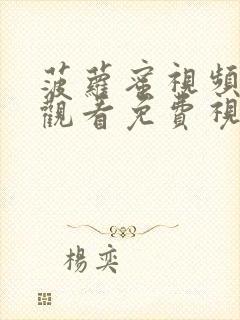 菠蘿蜜視頻
觀看免費視
楊奕